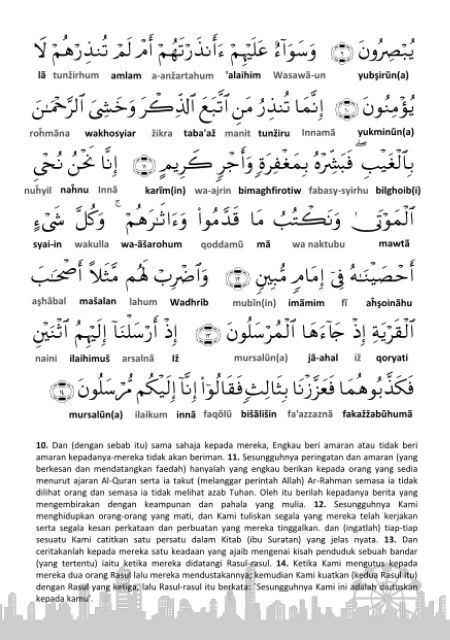 يُبْصِرُونَ ﴿٩﴾ وَسَوَآءٌ عَلَيْهِمْ ءَأَنذَرْتَهُمْ أَمْ لَمْ تُنذِرْهُمْ لَا
lā tunžirhum amlam a-anžartahum 'alaihim Wasawā-un yubṣirūn(a)
يُؤْمِنُونَ ﴿١٠﴾ إِنَّمَا تُنذِرُ مَنِ ٱتَّبَعَ ٱلذِّكْرَ وَخَشِىَ ٱلرَّحْمَـٰنَ
roḥmāna wakhosyiar žikra taba'až manit tunžiru Innamā yukminūn(a)
بِٱلْغَيْبِ ۖ فَبَشِّرْهُ بِمَغْفِرَةٍ وَأَجْرٍ كَرِيمٍ ﴿١١﴾ إِنَّا نَحْنُ نُحْىِ
nuḥyil naḥnu Innā karīm(in) wa-ajrin bimaghfirotiw fabasy-syirhu bilghoib(i)
ٱلْمَوْتَىٰ وَنَكْتُبُ مَا قَدَّمُوا۟ وَءَاثَـٰرَهُمْ ۚ وَكُلَّ شَىْءٍ
syai-in wakulla wa-āšarohum qoddamū mā wa naktubu mawtā
أَحْصَيْنَـٰهُ فِىٓ إِمَامٍ مُّبِينٍ ﴿١٢﴾ وَٱضْرِبْ لَهُم مَّثَلًا أَصْحَـٰبَ
aṣhābal mašalan lahum Wadhrib mubīn(in) imāmim fī aḥṣoināhu
ٱلْقَرْيَةِ إِذْ جَآءَهَا ٱلْمُرْسَلُونَ ﴿١٣﴾ إِذْ أَرْسَلْنَآ إِلَيْهِمُ ٱثْنَيْنِ
naini ilaihimuš arsalnā Iž mursalūn(a) jā-ahal iž qoryati
فَكَذَّبُوهُمَا فَعَزَّزْنَا بِثَالِثٍ فَقَالُوٓا۟ إِنَّآ إِلَيْكُم مُّرْسَلُونَ ﴿١٤﴾
mursalūn(a) ilaikum innā faqōlū bišālišin fa'azzaznā fakažžabūhumā
10. Dan (dengan sebab itu) sama sahaja kepada mereka, Engkau beri amaran atau tidak beri
amaran kepadanya-mereka tidak akan beriman. 11. Sesungguhnya peringatan dan amaran (yang
berkesan dan mendatangkan faedah) hanyalah yang engkau berikan kepada orang yang sedia
menurut ajaran Al-Quran serta ia takut (melanggar perintah Allah) Ar-Rahman semasa ia tidak
dilihat orang dan semasa ia tidak melihat azab Tuhan. Oleh itu berilah kepadanya berita yang
mengembirakan dengan keampunan dan pahala yang mulia. 12. Sesungguhnya Kami
menghidupkan orang-orang yang mati, dan Kami tuliskan segala yang mereka telah kerjakan
serta segala kesan perkataan dan perbuatan yang mereka tinggalkan. dan (ingatlah) tiap-tiap
sesuatu Kami catitkan satu persatu dalam Kitab (ibu Suratan) yang jelas nyata. 13. Dan
ceritakanlah kepada mereka satu keadaan yang ajaib mengenai kisah penduduk sebuah bandar
(yang tertentu) iaitu ketika mereka didatangi Rasul-rasul. 14. Ketika Kami mengutus kepada
mereka dua orang Rasul lalu mereka mendustakannya; kemudian Kami kuatkan (kedua Rasul itu)
dengan Rasul yang ketiga, lalu Rasul-rasul itu berkata: `Sesungguhnya Kami ini adalah diutuskan
kepada kamu`.